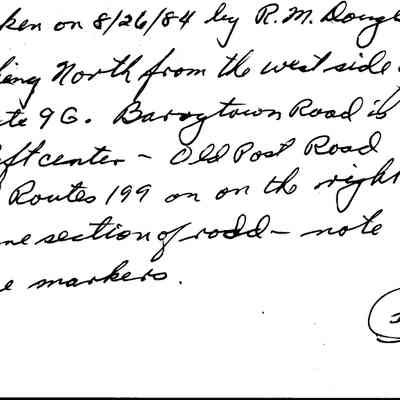 ken on 8/26/84 by R.M. Dougl
ing North from the west side
te 9G. Barrytown Road is
ft center - Old Post Road
Routes 199 on on the right
ne section of road - note
e markers.